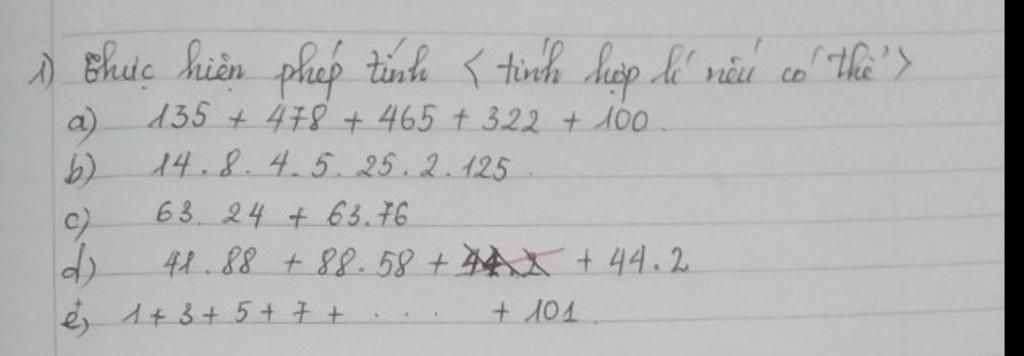 1) Thực hiện phép tính < tính hợp lí nếu có thể >
a) 135 + 478 + 465 + 322 + 100
b) 14 . 8 . 4 . 5 . 25 . 2 . 125
c) 63 . 24 + 63 . 76
d) 41 . 88 + 88 . 58 + + 44 . 2
e) 1 + 3 + 5 + 7 + . . . + 101